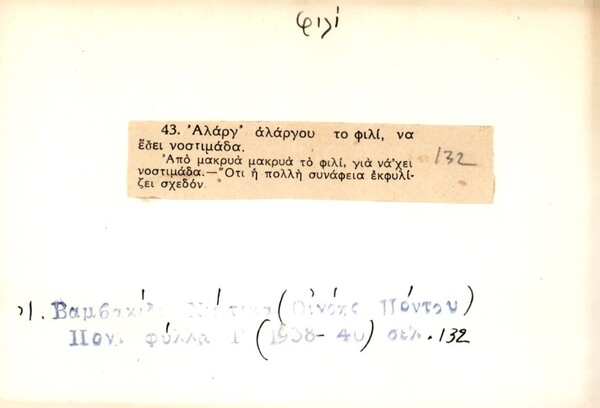 φιλί
43. Ἀλάργ' ἀλάργου το φιλί, να
ἔσει νοστιμάδα.
Ἀπὸ μακρυὰ μακρυὰ τὸ φιλί, γιὰ νἄχει
νοστιμάδα.—Ὅτι ἡ πολλὴ συνάφεια ἐκφυλί-
ζει σχεδόν
132
Βαμβακίδη (Οἰνόης Πόντου)
Ποντ. φύλλα Γ (1938-40) σελ. 132